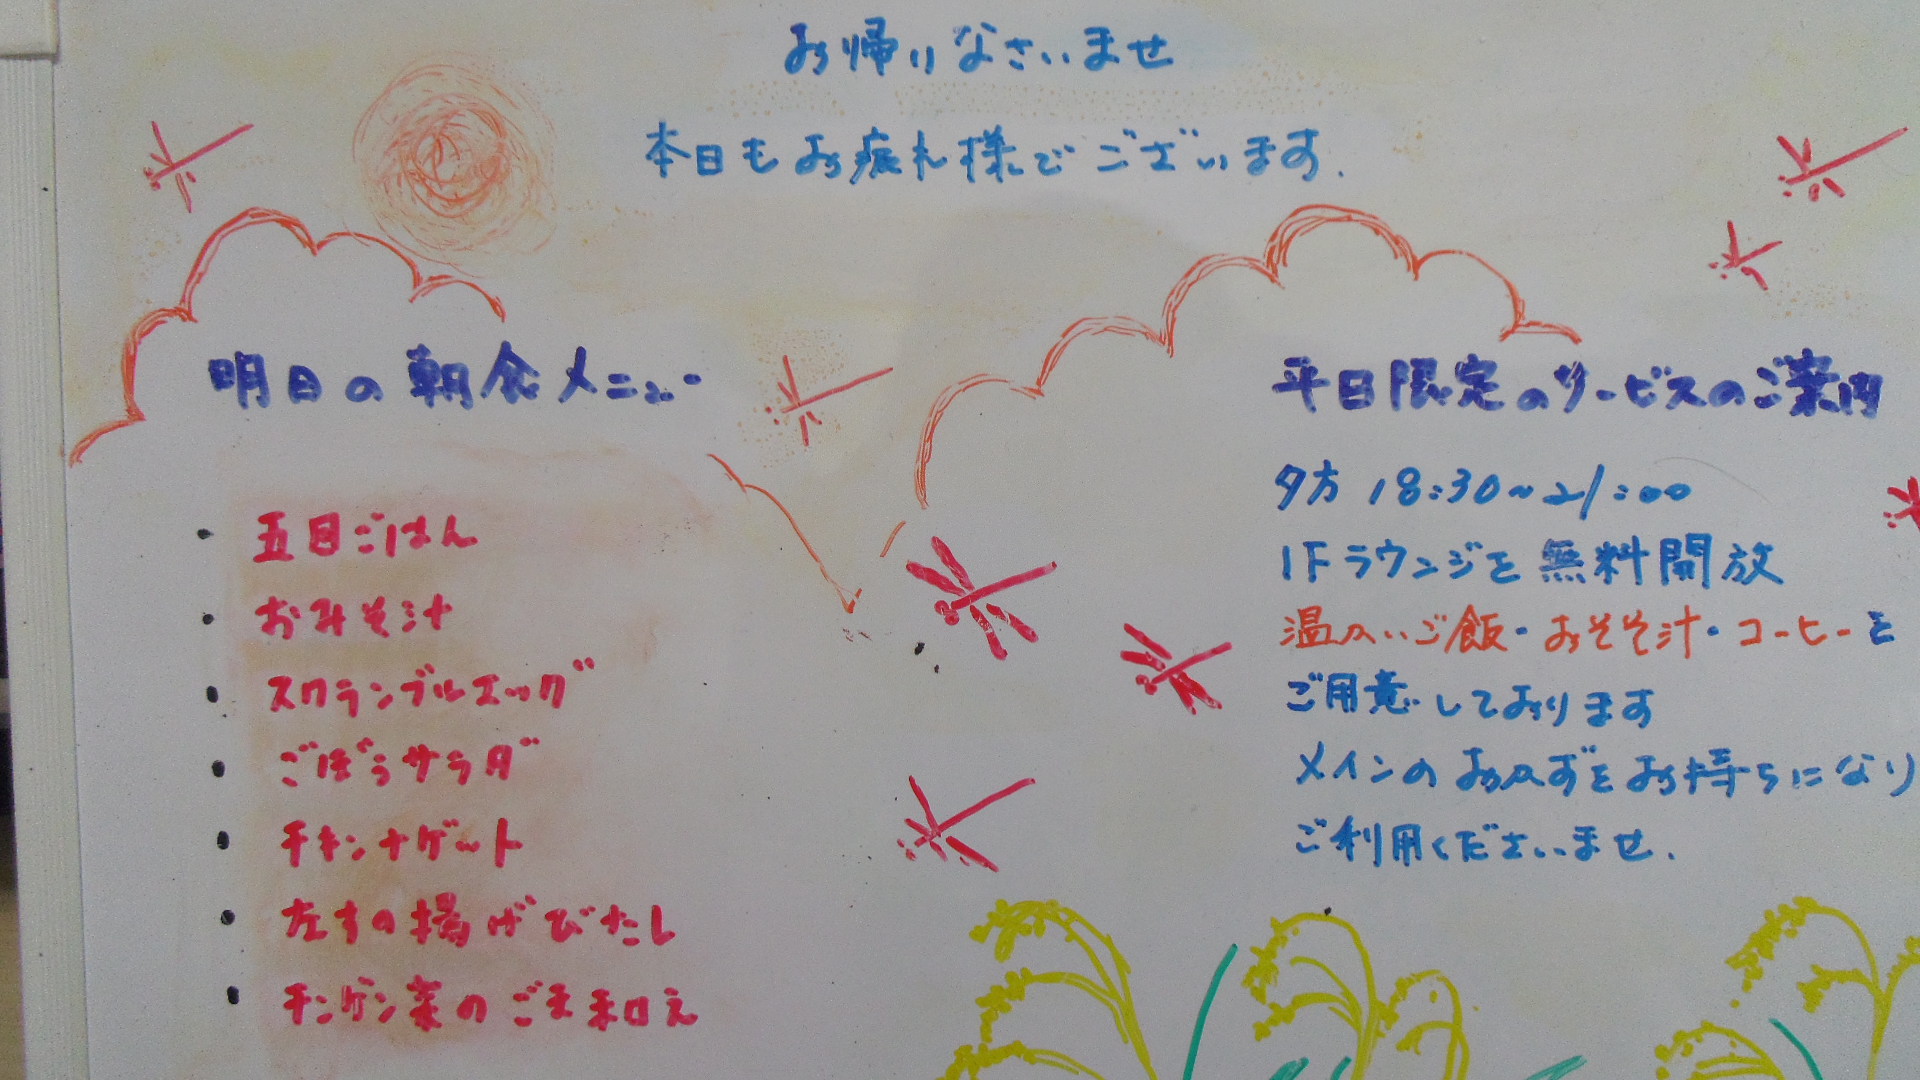 お帰りなさいませ
本日もお疲れ様でございます.
明日の朝食メニュー
・五目ごはん
・おみそ汁
・スクランブルエッグ
・ごぼうサラダ
・チキンナゲット
・なすの揚げびたし
・チンゲン菜のごま和え
平日限定のサービスのご案内
夕方 18:30~21:00
1Fラウンジを無料開放
温かいご飯・おそそ汁・コーヒーを
ご用意しております
メインのおかずをお持ちになり
ご利用くださいませ.